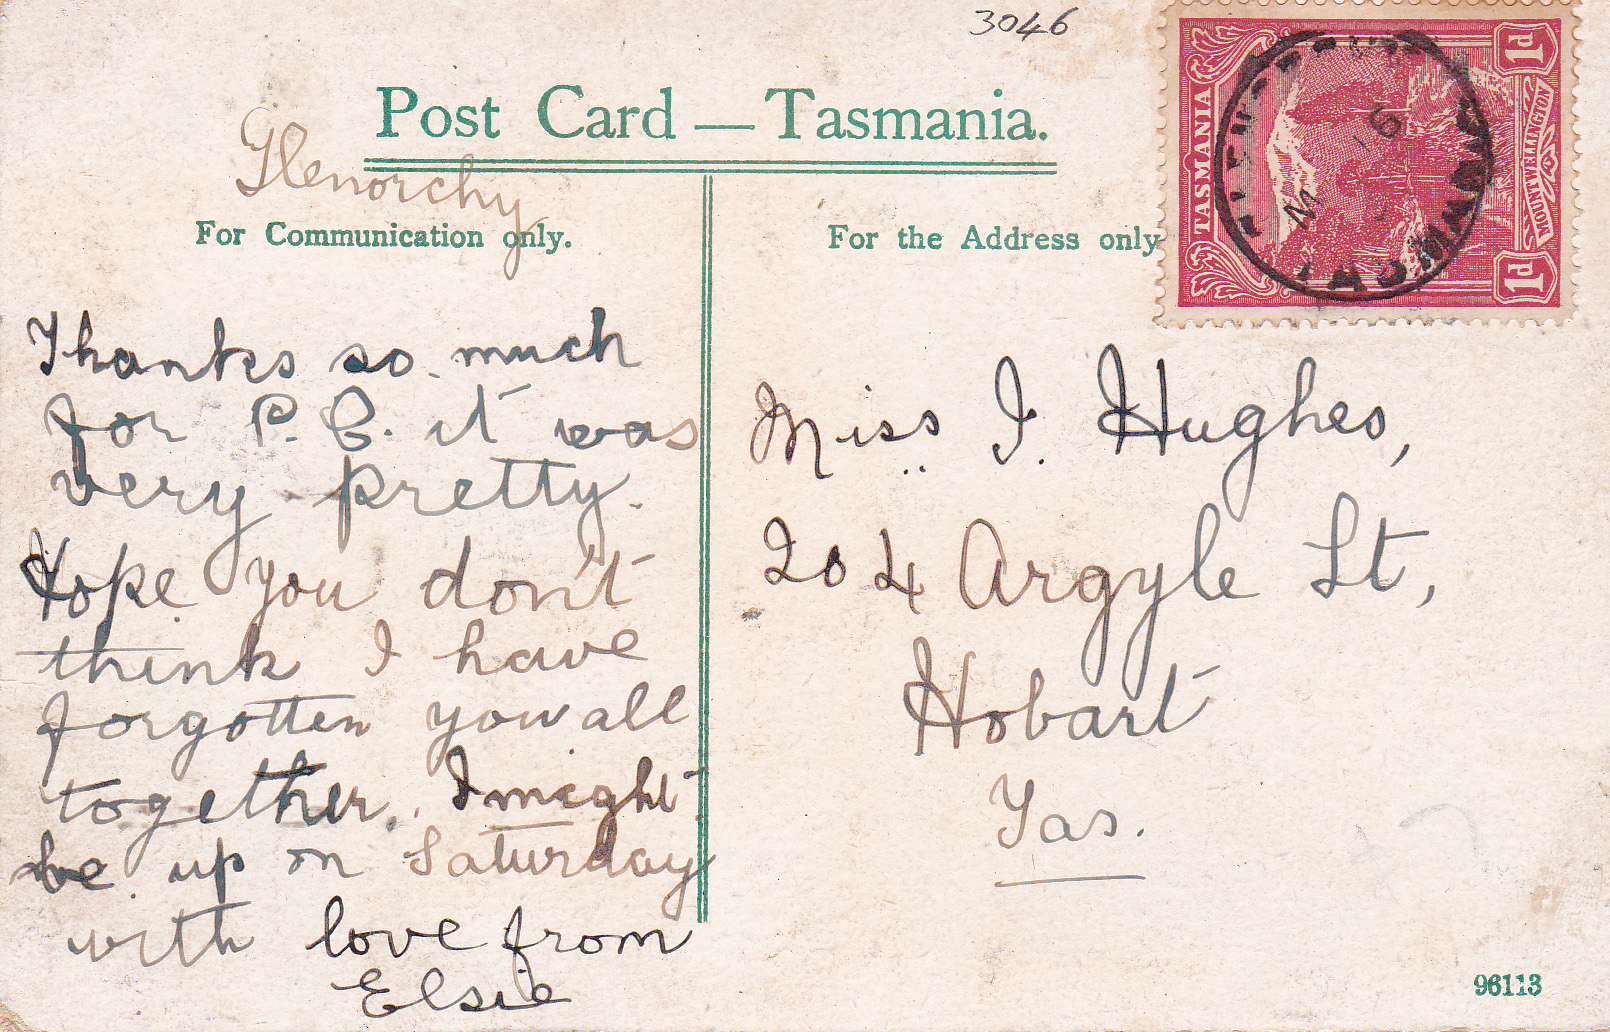 3046
Post Card — Tasmania.
Glenorchy
For Communication only.
Thanks so much
for P.C. it was
very pretty.
Hope you don't
think I have
forgotten you all
together. I might
be up on Saturday
with love from
Elsie
For the Address only
TASMANIA
1d
1d
MOUNT WELLINGTON
Miss I. Hughes,
204 Argyle St,
Hobart
Tas.
96113